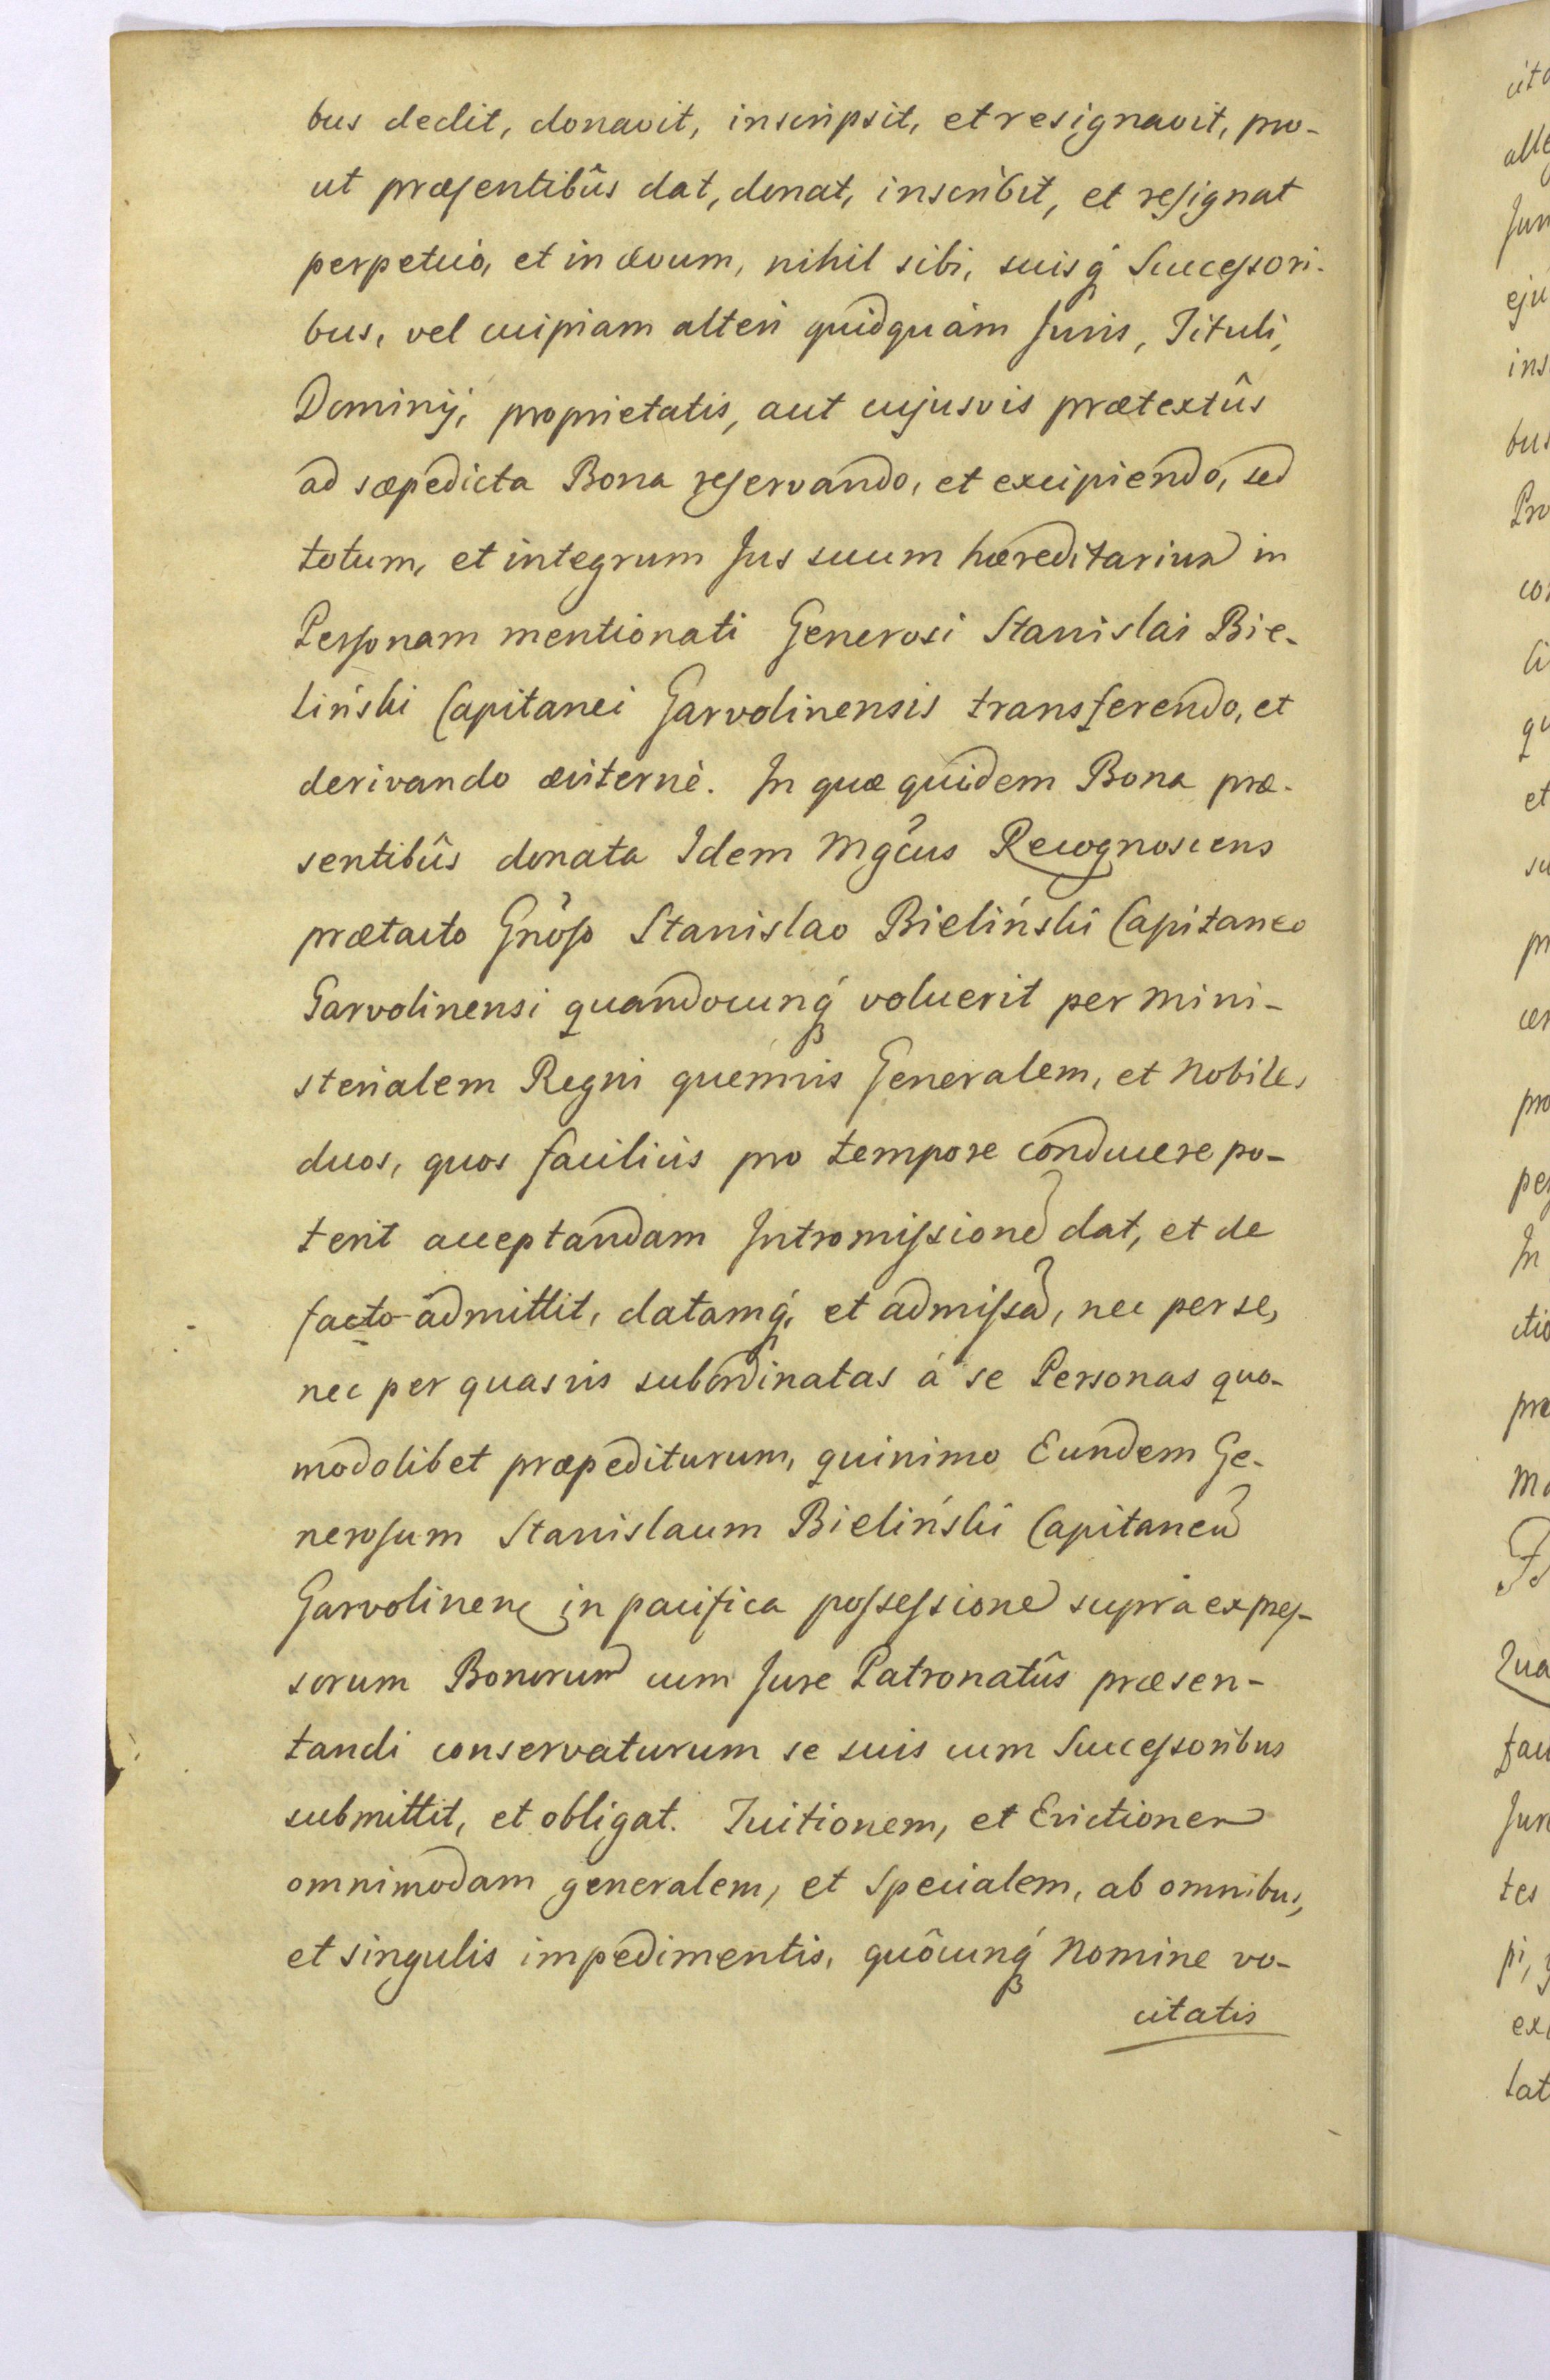 bus dedit, donavit, inscripsit, et resignavit, pro-
ut præsentibûs dat, donat, inscribit, et resignat
perpetuò, et in ævum, nihil sibi, suisq́ Successori-
bus, vel cuipiam alteri quidquàm Juris, Tituli,
Dominij, proprietatis, aut cujusvis prætextûs
ad sæpedicta Bona reservando, et excipiendo, sed
totum, et integrum Jus suum hæreditarium in
Personam mentionati Generosi Stanislai Bie-
liński Capitanei Garvolinensis transferendo, et
derivando æviternè. In quæ quidem Bona præ-
sentibûs donata Idem Mgcũs Recognoscens
prætacto Gnõso Stanislao Bieliński Capitaneo
Garvolinensi quandocunq́ voluerit per Mini-
sterialem Regni quemvis Generalem, et Nobiles
duos, quos faciliùs pro tempore conducere po-
terit acceptandam Intromissionẽ dat, et de
facto admittit, datamq́, et admissã, nec per se,
nec per quasvis subordinatas à se Personas quo-
modolibet præpediturum, quinimo Eundem Ge-
nerosum Stanislaum Bieliński Capitaneũ
Garvolinen̄ in pacifica possessione suprà expres-
sorum Bonorum cum Jure Patronatûs præsen-
tandi conservaturum se suis cum Successoribus
submittit, et obligat. Tuitionem, et Evictionem
omnimodam generalem, et specialem, ab omnibus,
et singulis impedimentis, quôcunq́ Nomine vo-
citatis